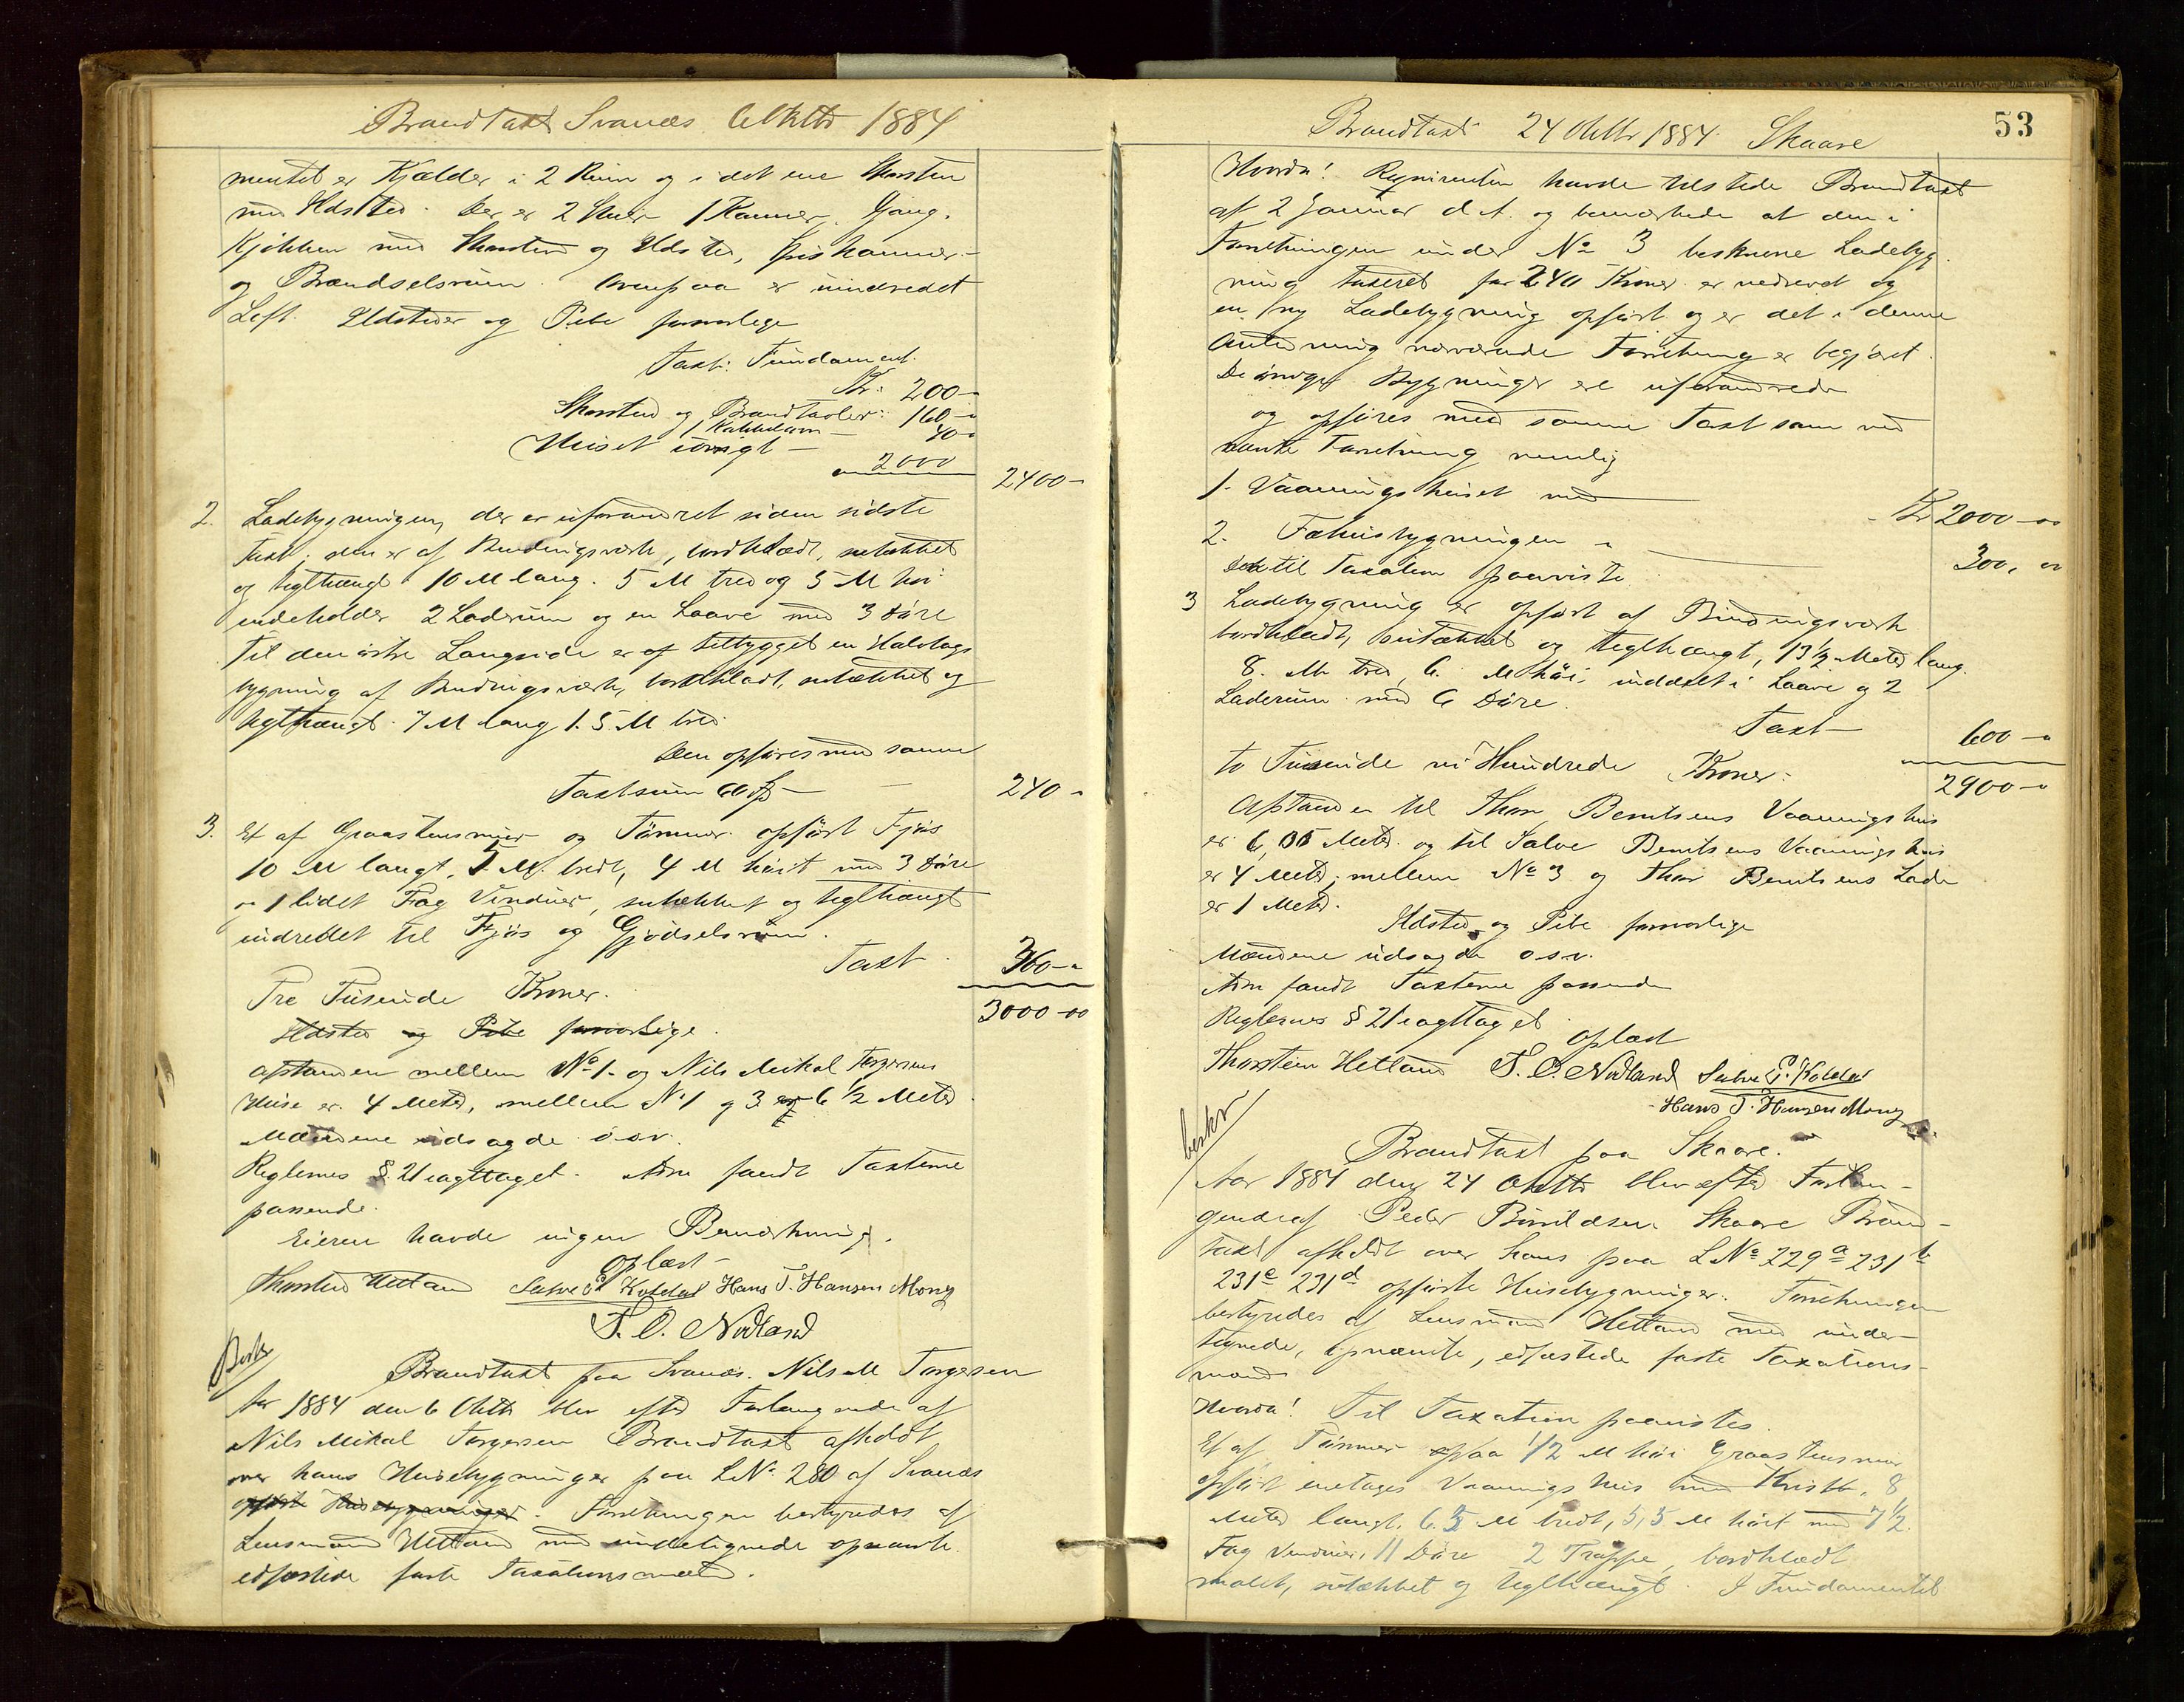 Brandtaxt Svanæs 6 Oktbr 1884
mentet er Kjælder i 2 Rum og i det ene Skorsten
med Ildsted. Der er 2 Stuer 1 Kammer, Gang,
Kjøkken med Skorsten og Ildsted, Spiskammer
og Brændselsrum. Ovenpaa er uindredet
Loft. Ildsteder og Pibe forsvarlige
Taxt: Fundament
Kr: 200-
Skorsten og Brandtavler: 160-
1 Kakkelovn - 40-
Huset iøvrigt -
2000
2400-
2. Ladebygningen, der er uforandret siden sidste
Taxt, den er af Bindingsværk, bordklædt, sutækket
og teglhængt 10 M lang. 5 M bred og 5 M høi
indeholder 2 Laderum og en Laave med 3 Døre
Til den østre Langside er af tilbygget en Halvtags
bygning af Bindingsværk, bordklædt, sutækket og
teglhængt. 7 M lang 1.5 M bred.
Den opføres med samme
Taxtsum
240-
3. Et af Graastensmur og Tømmer opført Fjøs
10 M langt, 5 M. bredt, 4 M høit med 3 Døre
1 lidet Fag Vinduer, sutækket og teglhængt
indrettet til Fjøs og Gjødselsrum.
Taxt
360-
Tre Tusende Kroner.
3000-00
Ildsted og Pibe forsvarlige.
Afstanden mellem No 1. og Nils Mikal Torgersens
Huse er 4 Meter, mellem No 1 og 3 er 6 ½ Meter
Mændene udsagde o.s.v.
Reglernes § 21 iagttaget. Alm fandt Taxterne
passende.
Eieren havde ingen Bemærkning.
Oplæst
Thorstein Hetland Salve E. Koldal Hans T. Hansen Mong
T. O. Nodland
Beskr
Brandtaxt paa Svanæs. Nils M Torgersen
Aar 1884 den 6 Oktbr blev efter Forlangende af
Nils Mikal Torgersen Brandtaxt afholdt
over hans Husebygninger paa LNo 280 af Svanæs
opførte Husebygninger. Forretningen bestyredes af
Lensmand Hetland med undertegnede opnævnte
edfæstede faste Taxationsmænd.
53
Brandtaxt 24 Oktbr 1884. Skaare
Hvorda! Reqvirenten havde tilstede Brandtaxt
af 2 Januar d. A. og bemærkede at den i
Forretningen under No 3 beskrevne Ladebyg
ning taxeret for 240 Kroner er nedrevet og
en ny Ladebygning opført og er det i denne
Anledning nærværende Forretning er begjært.
De øvrige Bygninger ere uforandrede
og opføres med samme Taxt som ved
nævnte Forretning nemlig
1. Vaaningshuset med
Kr 2000-00
2. Fæhusbygningen "
300, 00
Der til Taxation paavistes
3 Ladebygning er opført af Bindingsværk
bordklædt, sutækket og teglhængt, 13½ Meter lang
8. M bred, 6. M høi, inddelt i Laave og 2
Laderum med 6 Døre.
Taxt
600-
to Tusinde ni Hundrede Kroner.
2900-
Afstanden til Thor Berntsens Vaaningshus
er 6,05 Meter og til Salve Berntsens Vaaningshus
er 4 Meter, mellem No 3 og Thor Berntsens Lade
er 1 Meter.
Ildsted og Pibe forsvarlige
Mændene udsagde o.s.v.
Alm fandt Taxterne passende
Reglernes § 21 iagttaget
Oplæst
Thorstein Hetland T. O. Nodland Salve E. Koldal
Hans T. Hansen Mong
beskr
Brandtaxt paa Skaare.
Aar 1884 den 24 Oktbr blev efter Forlan-
gende af Peder Bårildsen Skaare Brand-
taxt afholdt over hans paa LNo 229a 231b
231c 231d opførte Husebygninger. Forretningen
bestyredes af Lensmand Hetland med under-
tegnede, opnævnte, edfæstede faste Taxations-
mænd
Hvorda! Til Taxation paavistes
Et af Tømmer paa ½ M høi Graastensmur
opført enetages Vaaningshus med Kvist, 8
Meter langt, 6.5 M bredt, 5,5 M høit med 7½
Fag Vinduer, 11 Døre 2 Trappe, bordklædt
malet, sutækket og teglhængt. I Fundamentet